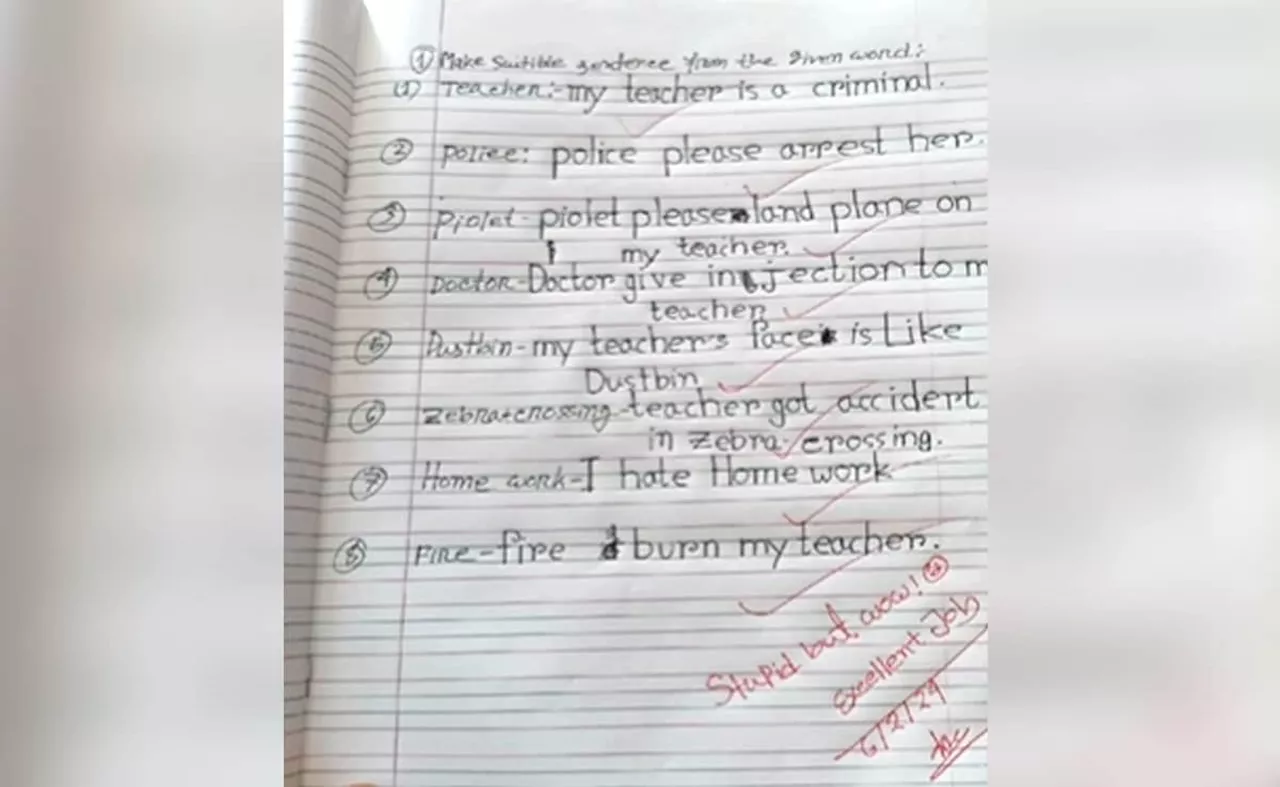 ① Make Suitible sendence from the given word:
(1) Teacher:- my teacher is a criminal.
② Police: police please arrest her.
③ Piolet - piolet please land plane on
my teacher.
④ Doctor - Doctor give injection to m
teacher
⑤ Dustbin - my teacher's face is Like
Dustbin
⑥ Zebra crossing - teacher got accident
in Zebra crossing.
⑦ Home work - I hate Home work
⑧ Fire - fire burn my teacher.
Stupid but wow!
Excellent Job
6/2/24